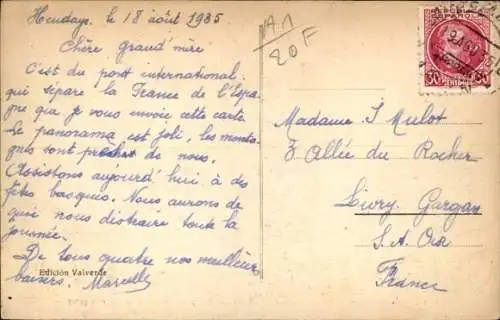 Hendaye. le 18 août 1935
N A 1
20 F
Chère grand'mère
C'est du pont international
qui sépare la France de l'Espa-
gne que je vous envoie cette carte.
Le panorama est joli, les monta-
gnes sont proches de nous.
Assistons aujourd'hui à des
fêtes basques. Nous aurons de
quoi nous distraire toute la
journée.
De tous quatre nos meilleurs
baisers. Marcelle
Edición Valverde
ESPAÑOL
30
Madame J Mulot
7 Allée du Rocher
Livry. Gargan
S. et Oise
France